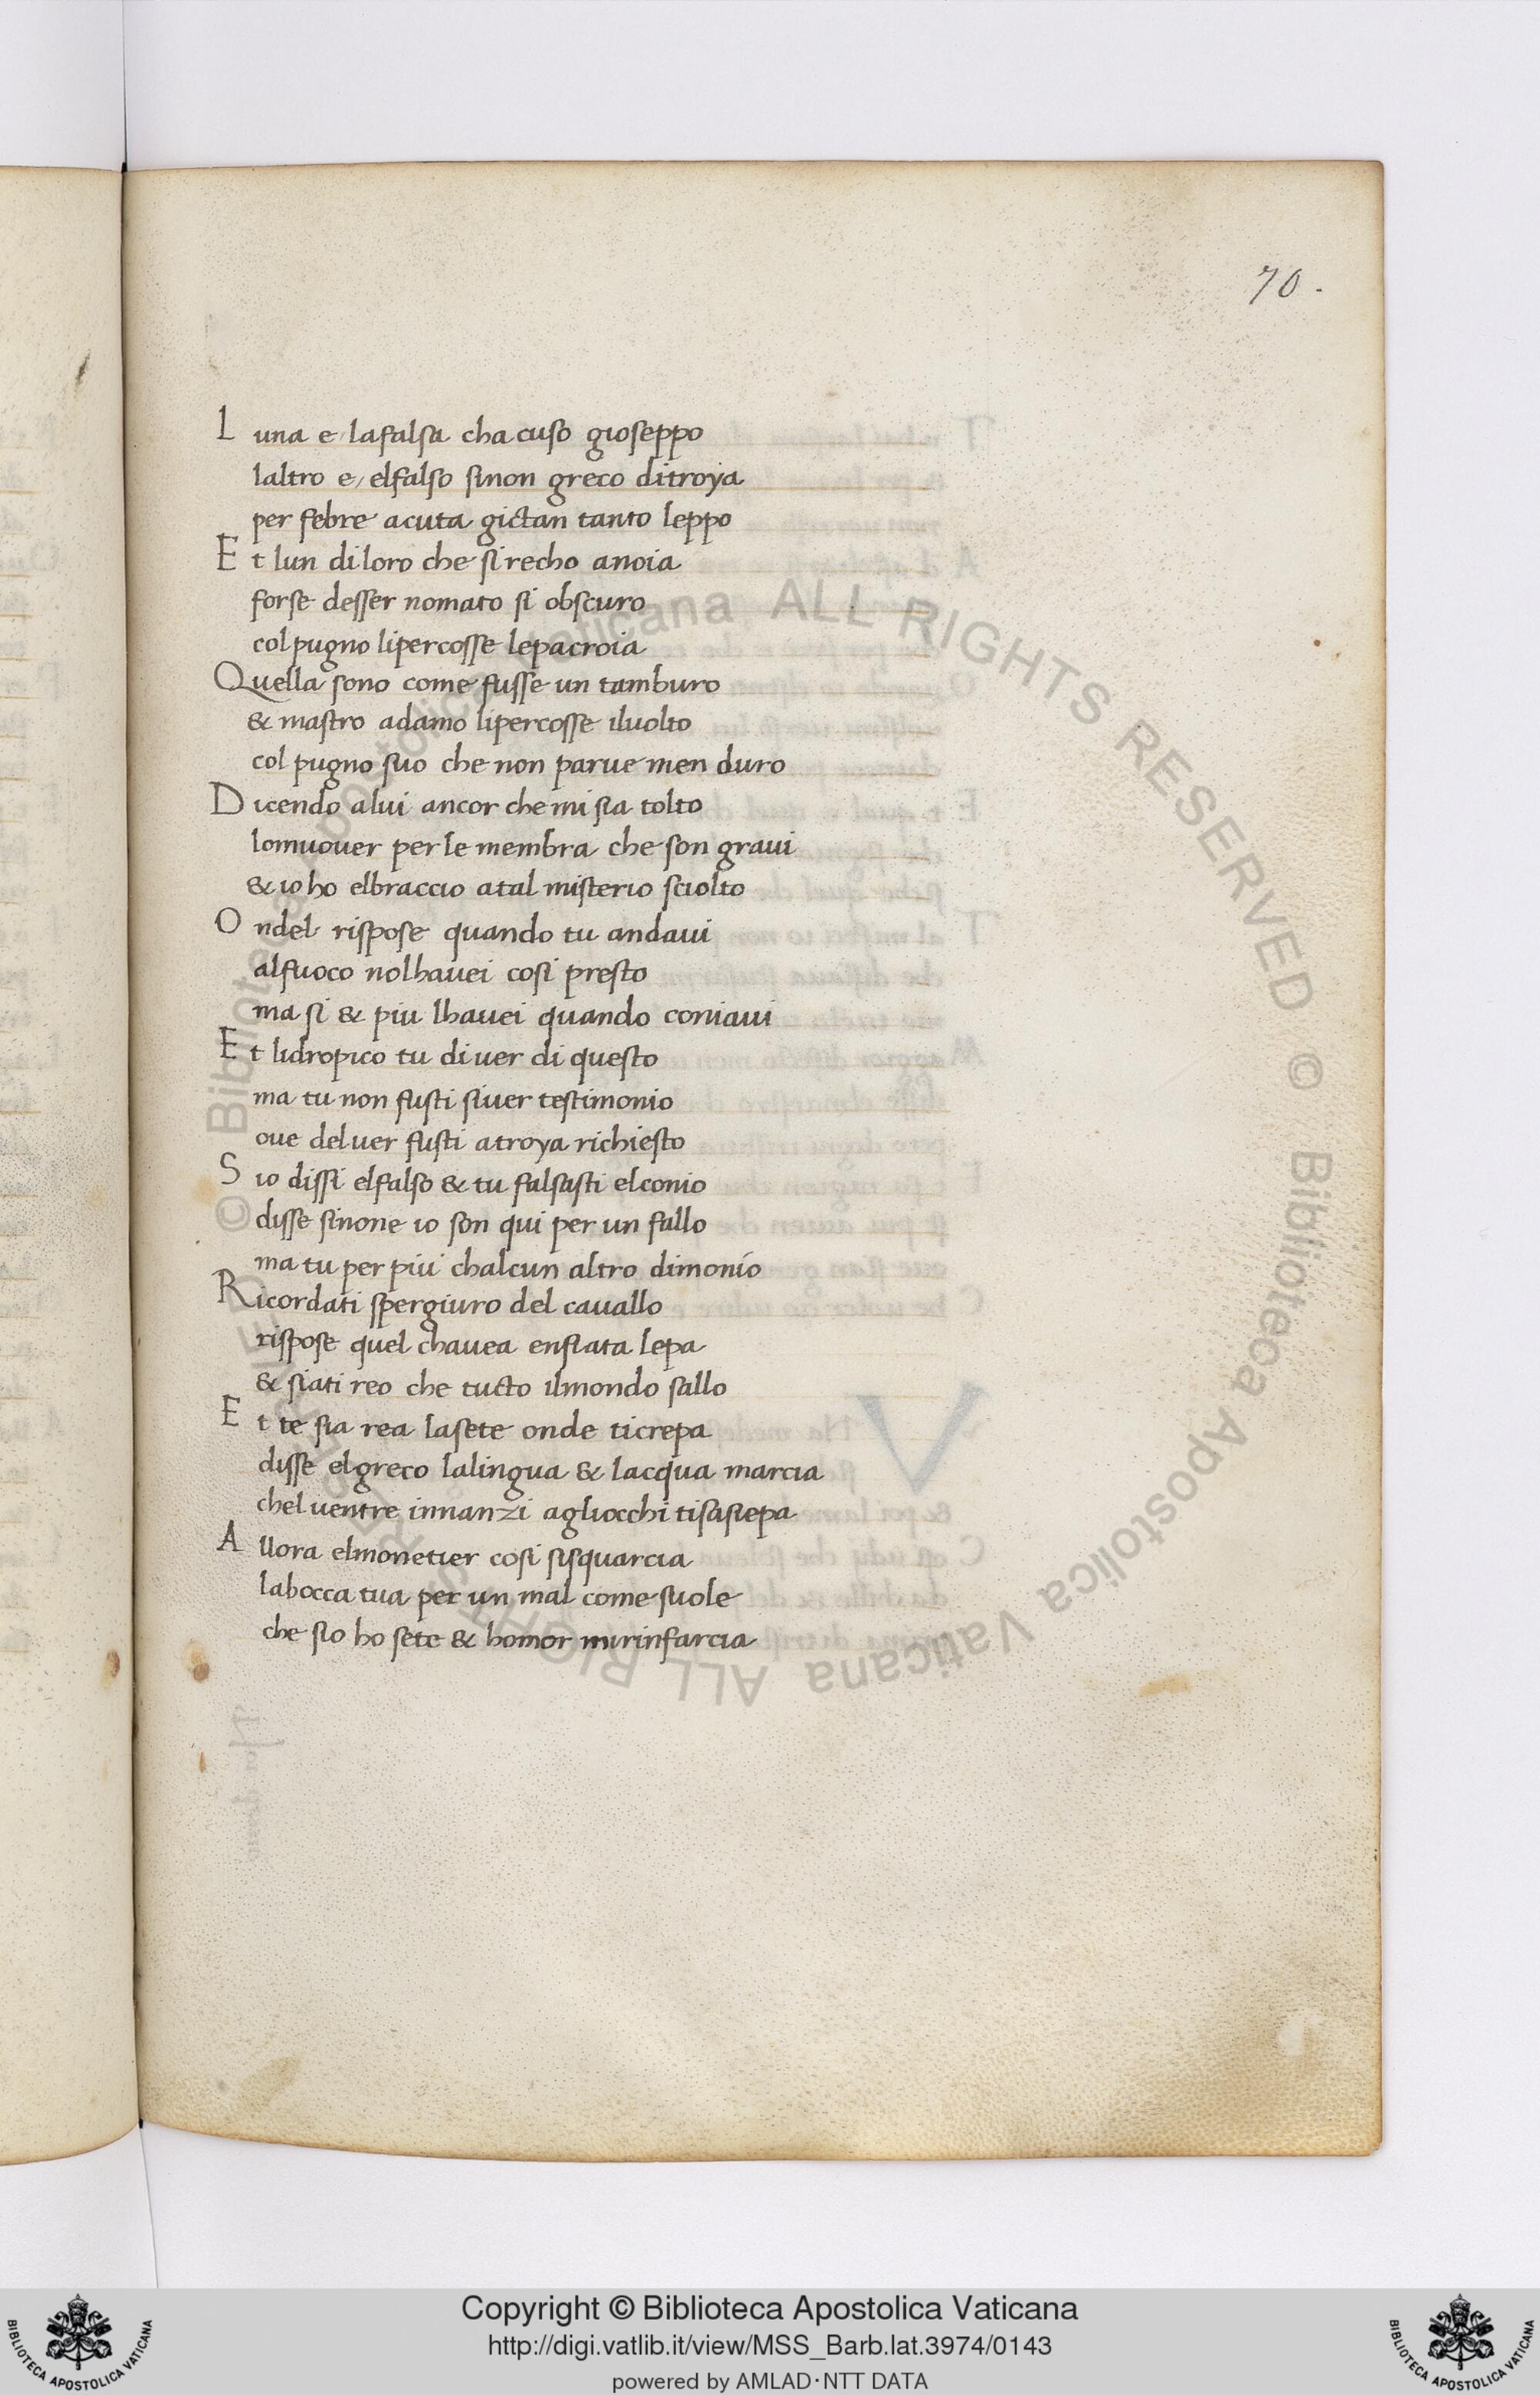 70.
L una e lafalsa cha cuso gioseppo
laltro e, elfalso sinon greco ditroya
per febre acuta gictan tanto leppo
E t lun di loro che si recho anoia
forse desser nomato si obscuro
col pugno lipercosse lepacroia
Quella sono come fusse un tamburo
& mastro adamo lipercosse iluolto
col pugno suo che non parue men duro
D icendo alui ancor che mi sia tolto
lomuouer per le membra che son graui
& io ho elbraccio atal misterio sciolto
O ndel rispose quando tu andaui
alfuoco nolhauei cosi presto
ma si & piu lhauei quando coniaui
E t lidropico tu di uer di questo
ma tu non fusti siuer testimonio
oue deluer fusti atroya richiesto
S io dissi elfalso & tu falsasti elconio
disse sinone io son qui per un fallo
ma tu per piu chalcun altro dimonio
Ricordati spergiuro del cauallo
rispose quel chauea enfiata lepa
& siati reo che tucto ilmondo sallo
E t te sia rea lasete onde ticrepa
disse elgreco lalingua & lacqua marcia
chel uentre innanzi agliocchi tisasiepa
A llora elmonetier cosi sisquarcia
labocca tua per un mal come suole
che sio ho sete & homor mirinfarcia
© Biblioteca Apostolica Vaticana ALL RIGHTS RESERVED © Biblioteca Apostolica Vaticana ALL RIGHTS RESERVED
Copyright © Biblioteca Apostolica Vaticana
http://digi.vatlib.it/view/MSS_Barb.lat.3974/0143
powered by AMLAD·NTT DATA
BIBLIOTECA APOSTOLICA VATICANA
BIBLIOTECA APOSTOLICA VATICANA